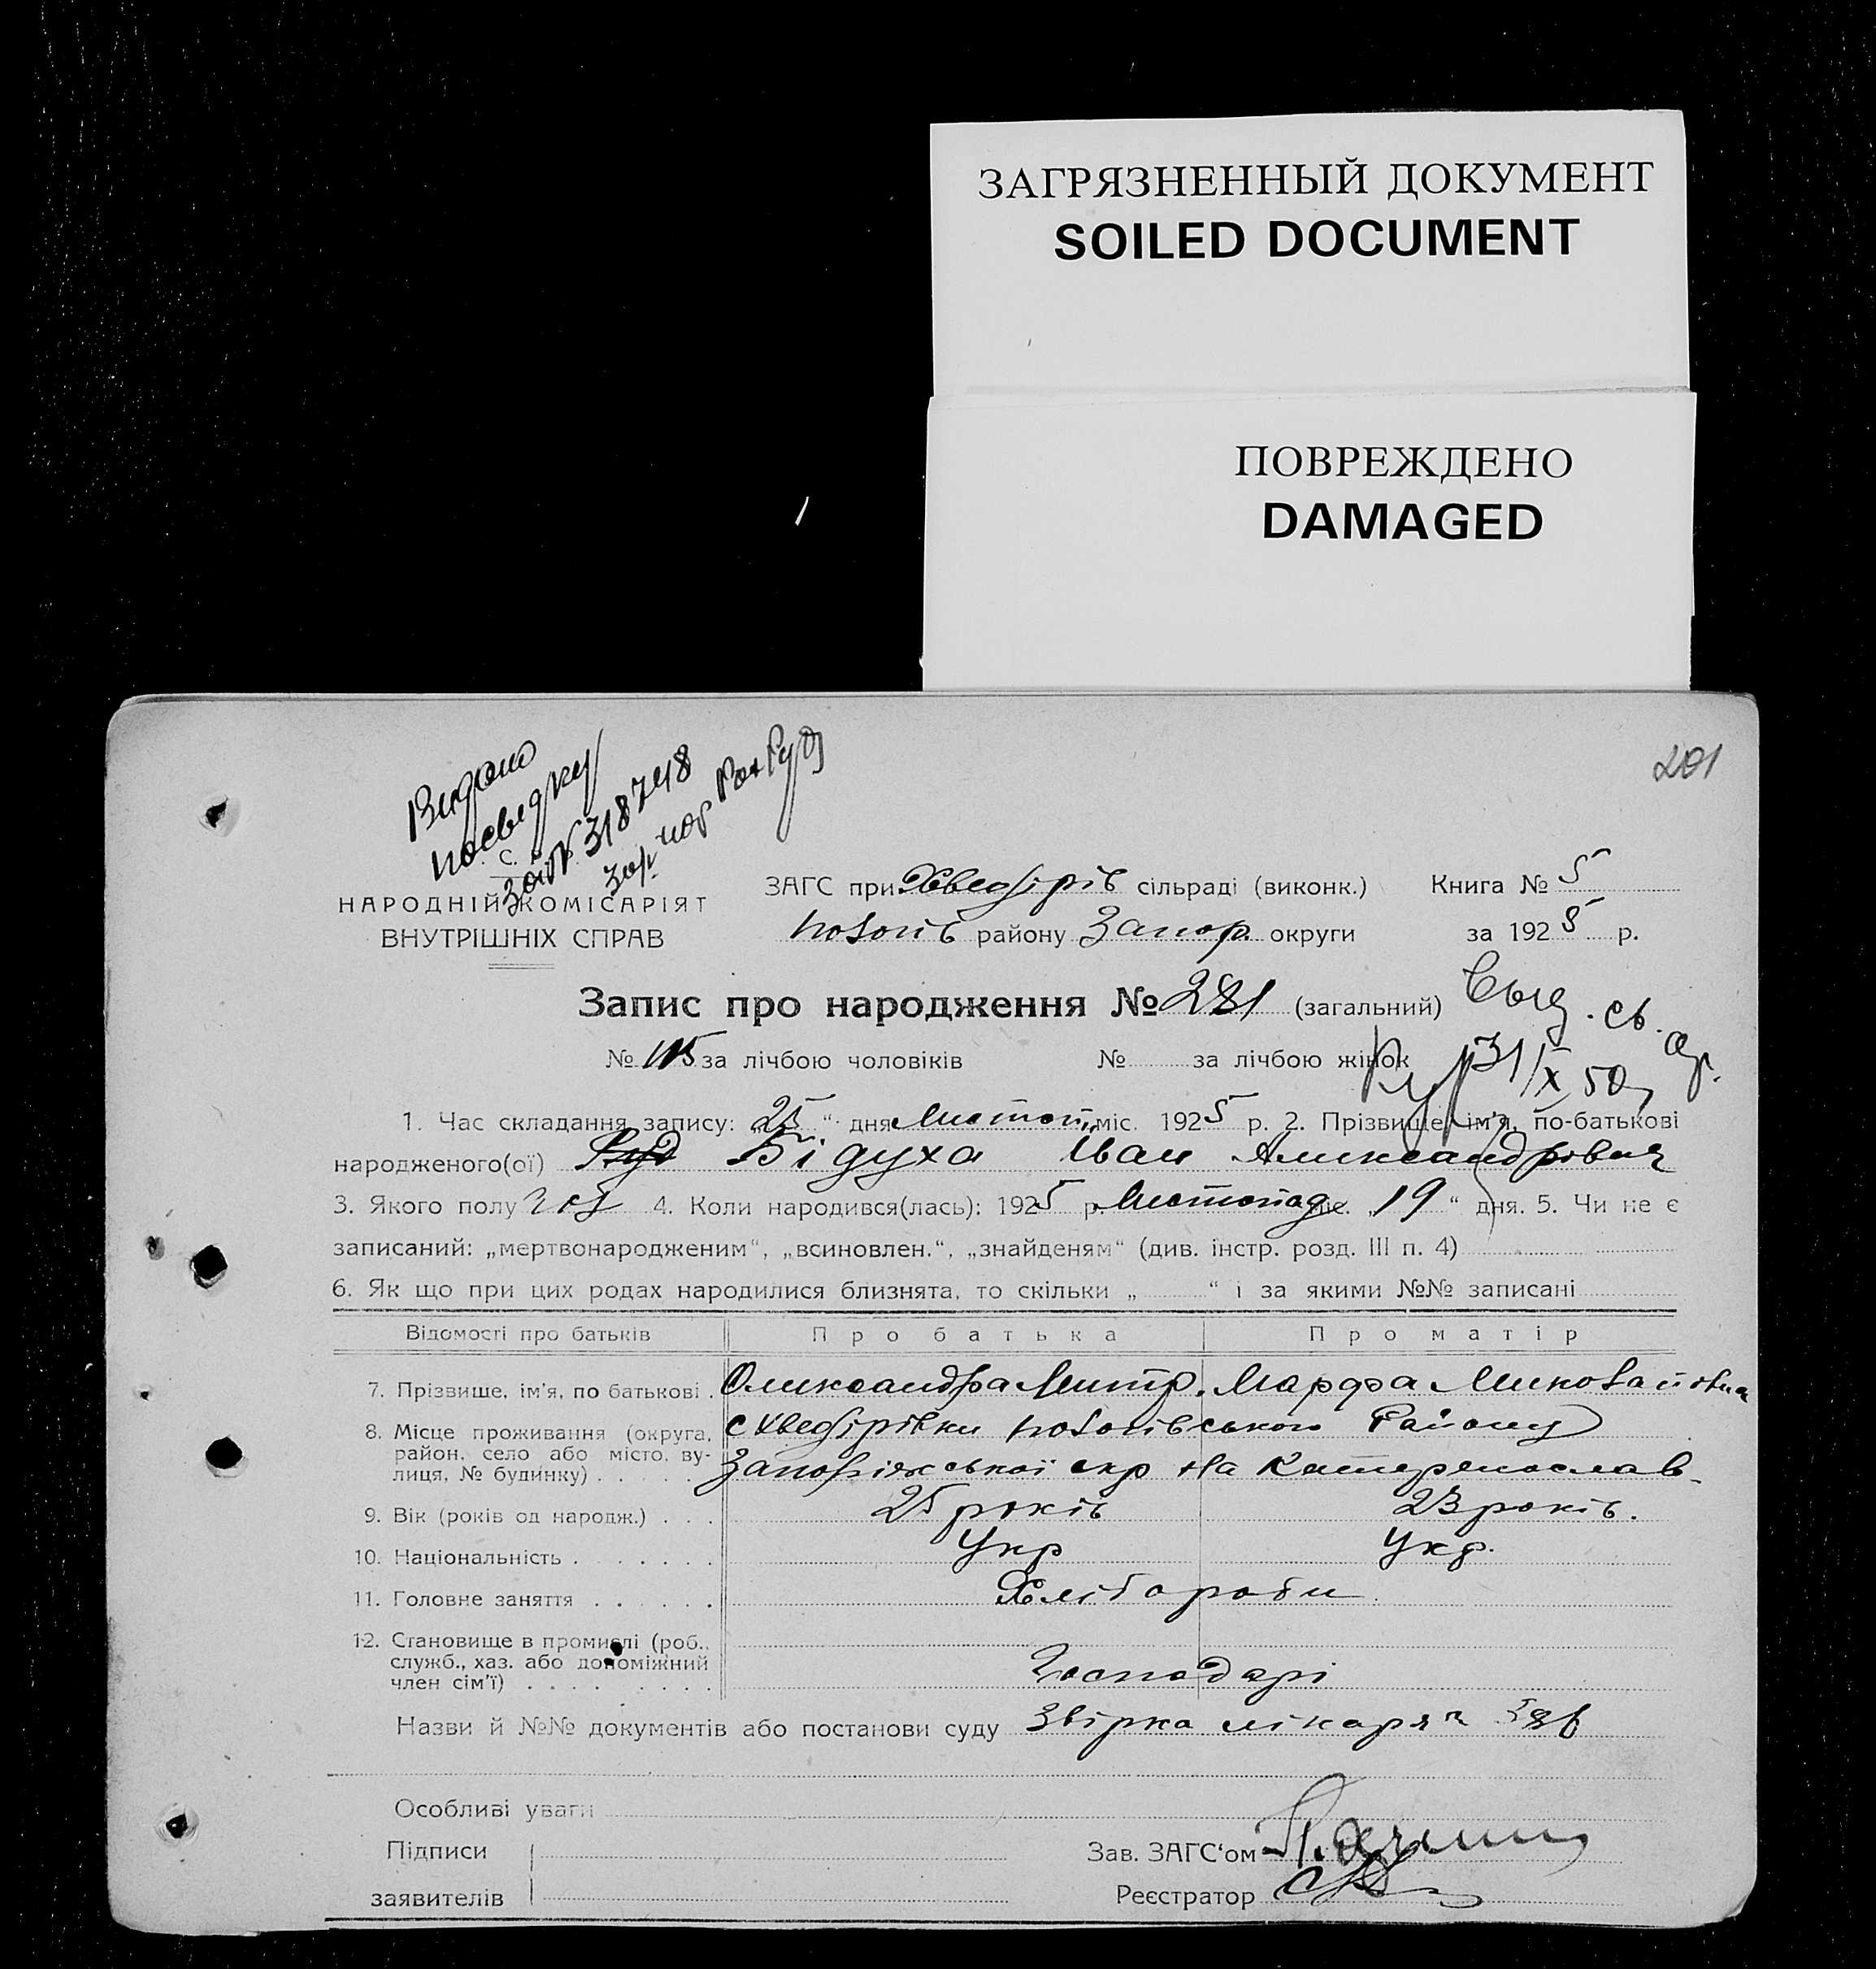 ЗАГРЯЗНЕННЫЙ ДОКУМЕНТ
SOILED DOCUMENT
ПОВРЕЖДЕНО
DAMAGED
201
Видано
посвідку
318748
НАРОДНІЙ КОМІСАРІЯТ
ВНУТРІШНІХ СПРАВ
ЗАГС при Хведірів сільраді (виконк.) Книга № 5
пологів району Запор. округи за 1925 р.
Запис про народження № 281 (загальний)
31/X 50
№ 115 за лічбою чоловіків № за лічбою жінок
1. Час складання запису: „25“ дня Листоп. міс. 1925 р. 2. Прізвище, ім'я, по-батькові
народженого(ої) Бідуха Іван Александрович
3. Якого полу чол 4. Коли народився(лась): 1925 р. Листопад міс. „19“ дня. 5. Чи не є
записаний: „мертвонародженим“, „всиновлен.“, „знайденям“ (див. інстр. розд. III п. 4)
6. Як що при цих родах народилися близнята, то скільки „ “ і за якими №№ записані
Відомості про батьків Про батька Про матір
7. Прізвище, ім'я, по батькові . Олександра Митр. Марфа Миколаївна
8. Місце проживання (округа, с Хведірівки пологівського Району
район, село або місто, ву-
лиця, № будинку) . . . . . Запоріжської окр на Катеринослав-
9. Вік (років од народж.) . . . 25 років 23 років.
10. Національність . . . . . . . Укр Укр.
11. Головне заняття . . . . . . Хлібороби
12. Становище в промислі (роб.,
служб., хаз. або допоміжний
член сім'ї) . . . . . . . . . Господарі
Назви й №№ документів або постанови суду Звірка лікаря
Особливі уваги
Підписи
заявителів
Зав. ЗАГС'ом
Реєстратор